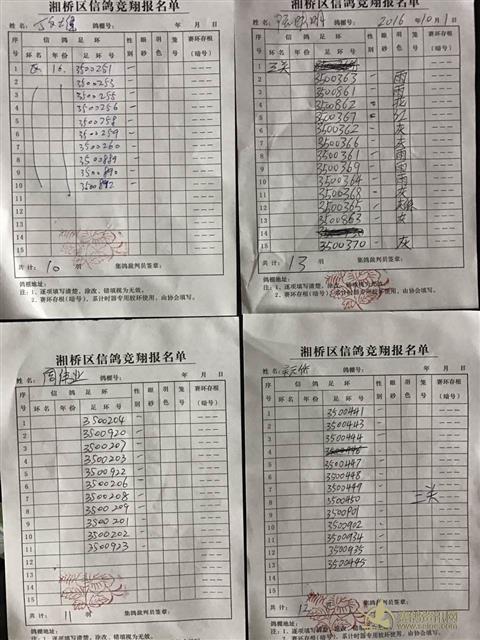 湘桥区信鸽竞翔报名单
鸽棚号: 年 月 日
序号 信鸽 足环号 性别 眼砂 羽色 笼号 赛环存根(暗号)
环名 年份 足环号
1 16. 3500251
2 3500253
3 3500255
4 3500256
5 3500258
6 3500259
7 3500260
8 3500889
9 3500890
10 3500892
11
12
13
14
15
共计: 10 羽 集鸽裁判员签章:
鸽棚地址:
注:1、逐项填写清楚,涂改、错填视为无效。
2、赛环存根(暗号),系计时器专用胶环使用,由协会填写。
湘桥区信鸽竞翔报名单
鸽棚号: 2016 年 10 月 1 日
序号 信鸽 性别 眼砂 羽色 笼号 赛环存根(暗号)
环名 年份 足环号
1 三关
2 3500363 雨
3 3500861 雨
4 3500862 花
5 3500367 红
6 3500362 灰
7 3500366 灰
8 3500361 雨
9 3500369 雨
10 3500364 雨
11 3500368 灰
12 3500365
13 3500863
14
15 3500370 灰
共计: 13 羽 集鸽裁判员签章:
鸽棚地址:
注:1、逐项填写清楚,涂改、错填视为无效。
2、赛环存根(暗号),系计时器专用胶环使用,由协会填写。
湘桥区信鸽竞翔报名单
周伟业 鸽棚号: 年 月 日
序号 信鸽 性别 眼砂 羽色 笼号 赛环存根(暗号)
环名 年份 足环号
1 3500204
2 3500920
3 3500207
4 3500203
5 3500922
6 3500206
7 3500208
8 3500209
9 3500201
10 3500202
11 3500923
12
13
14
15
共计: 11 羽 集鸽裁判员签章:
鸽棚地址:
注:1、逐项填写清楚,涂改、错填视为无效。
湘桥区信鸽竞翔报名单
鸽棚号: 年 月 日
序号 信鸽 性别 眼砂 羽色 笼号 赛环存根(暗号)
环名 年份 足环号
1 3500441
2 3500443
3 3500444
4
5 3500447
6 3500448
7 3500449
8 3500450 三关
9 3500901
10 3500902
11 3500934
12 3500935
13 3500445
14
15
共计: 12 羽 集鸽裁判员签章:
鸽棚地址:
注:1、逐项填写清楚,涂改、错填视为无效。